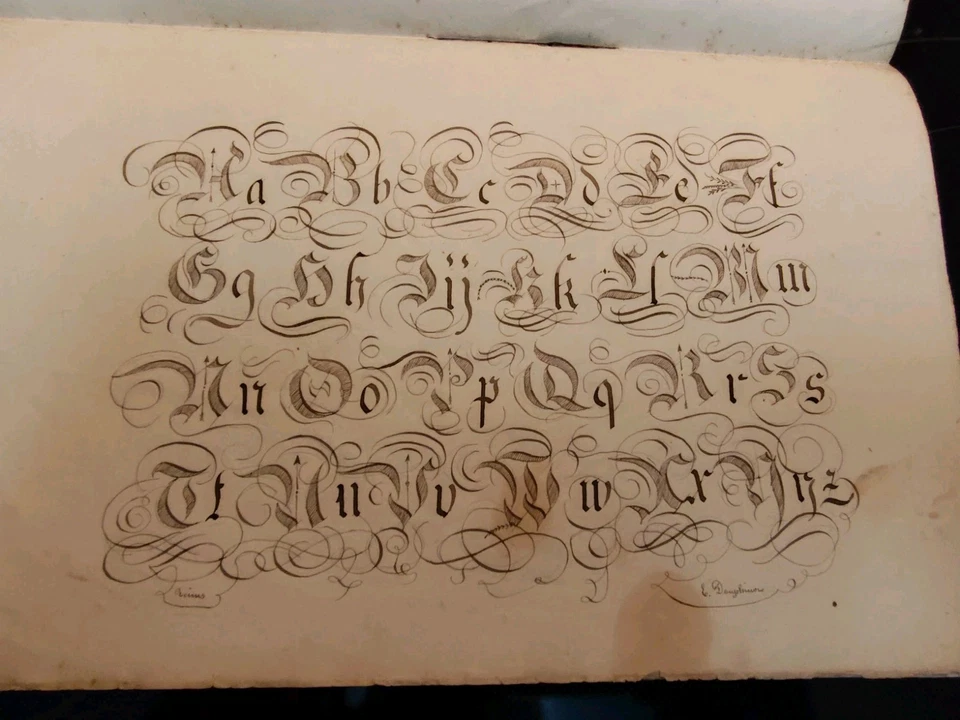 Aa Bb Cc Dd Ee Ff
Gg Hh Iij Kk Ll Mm
Nn Oo Pp Qq Rr Ss
Tt Uu Vv Ww Xx Yyz